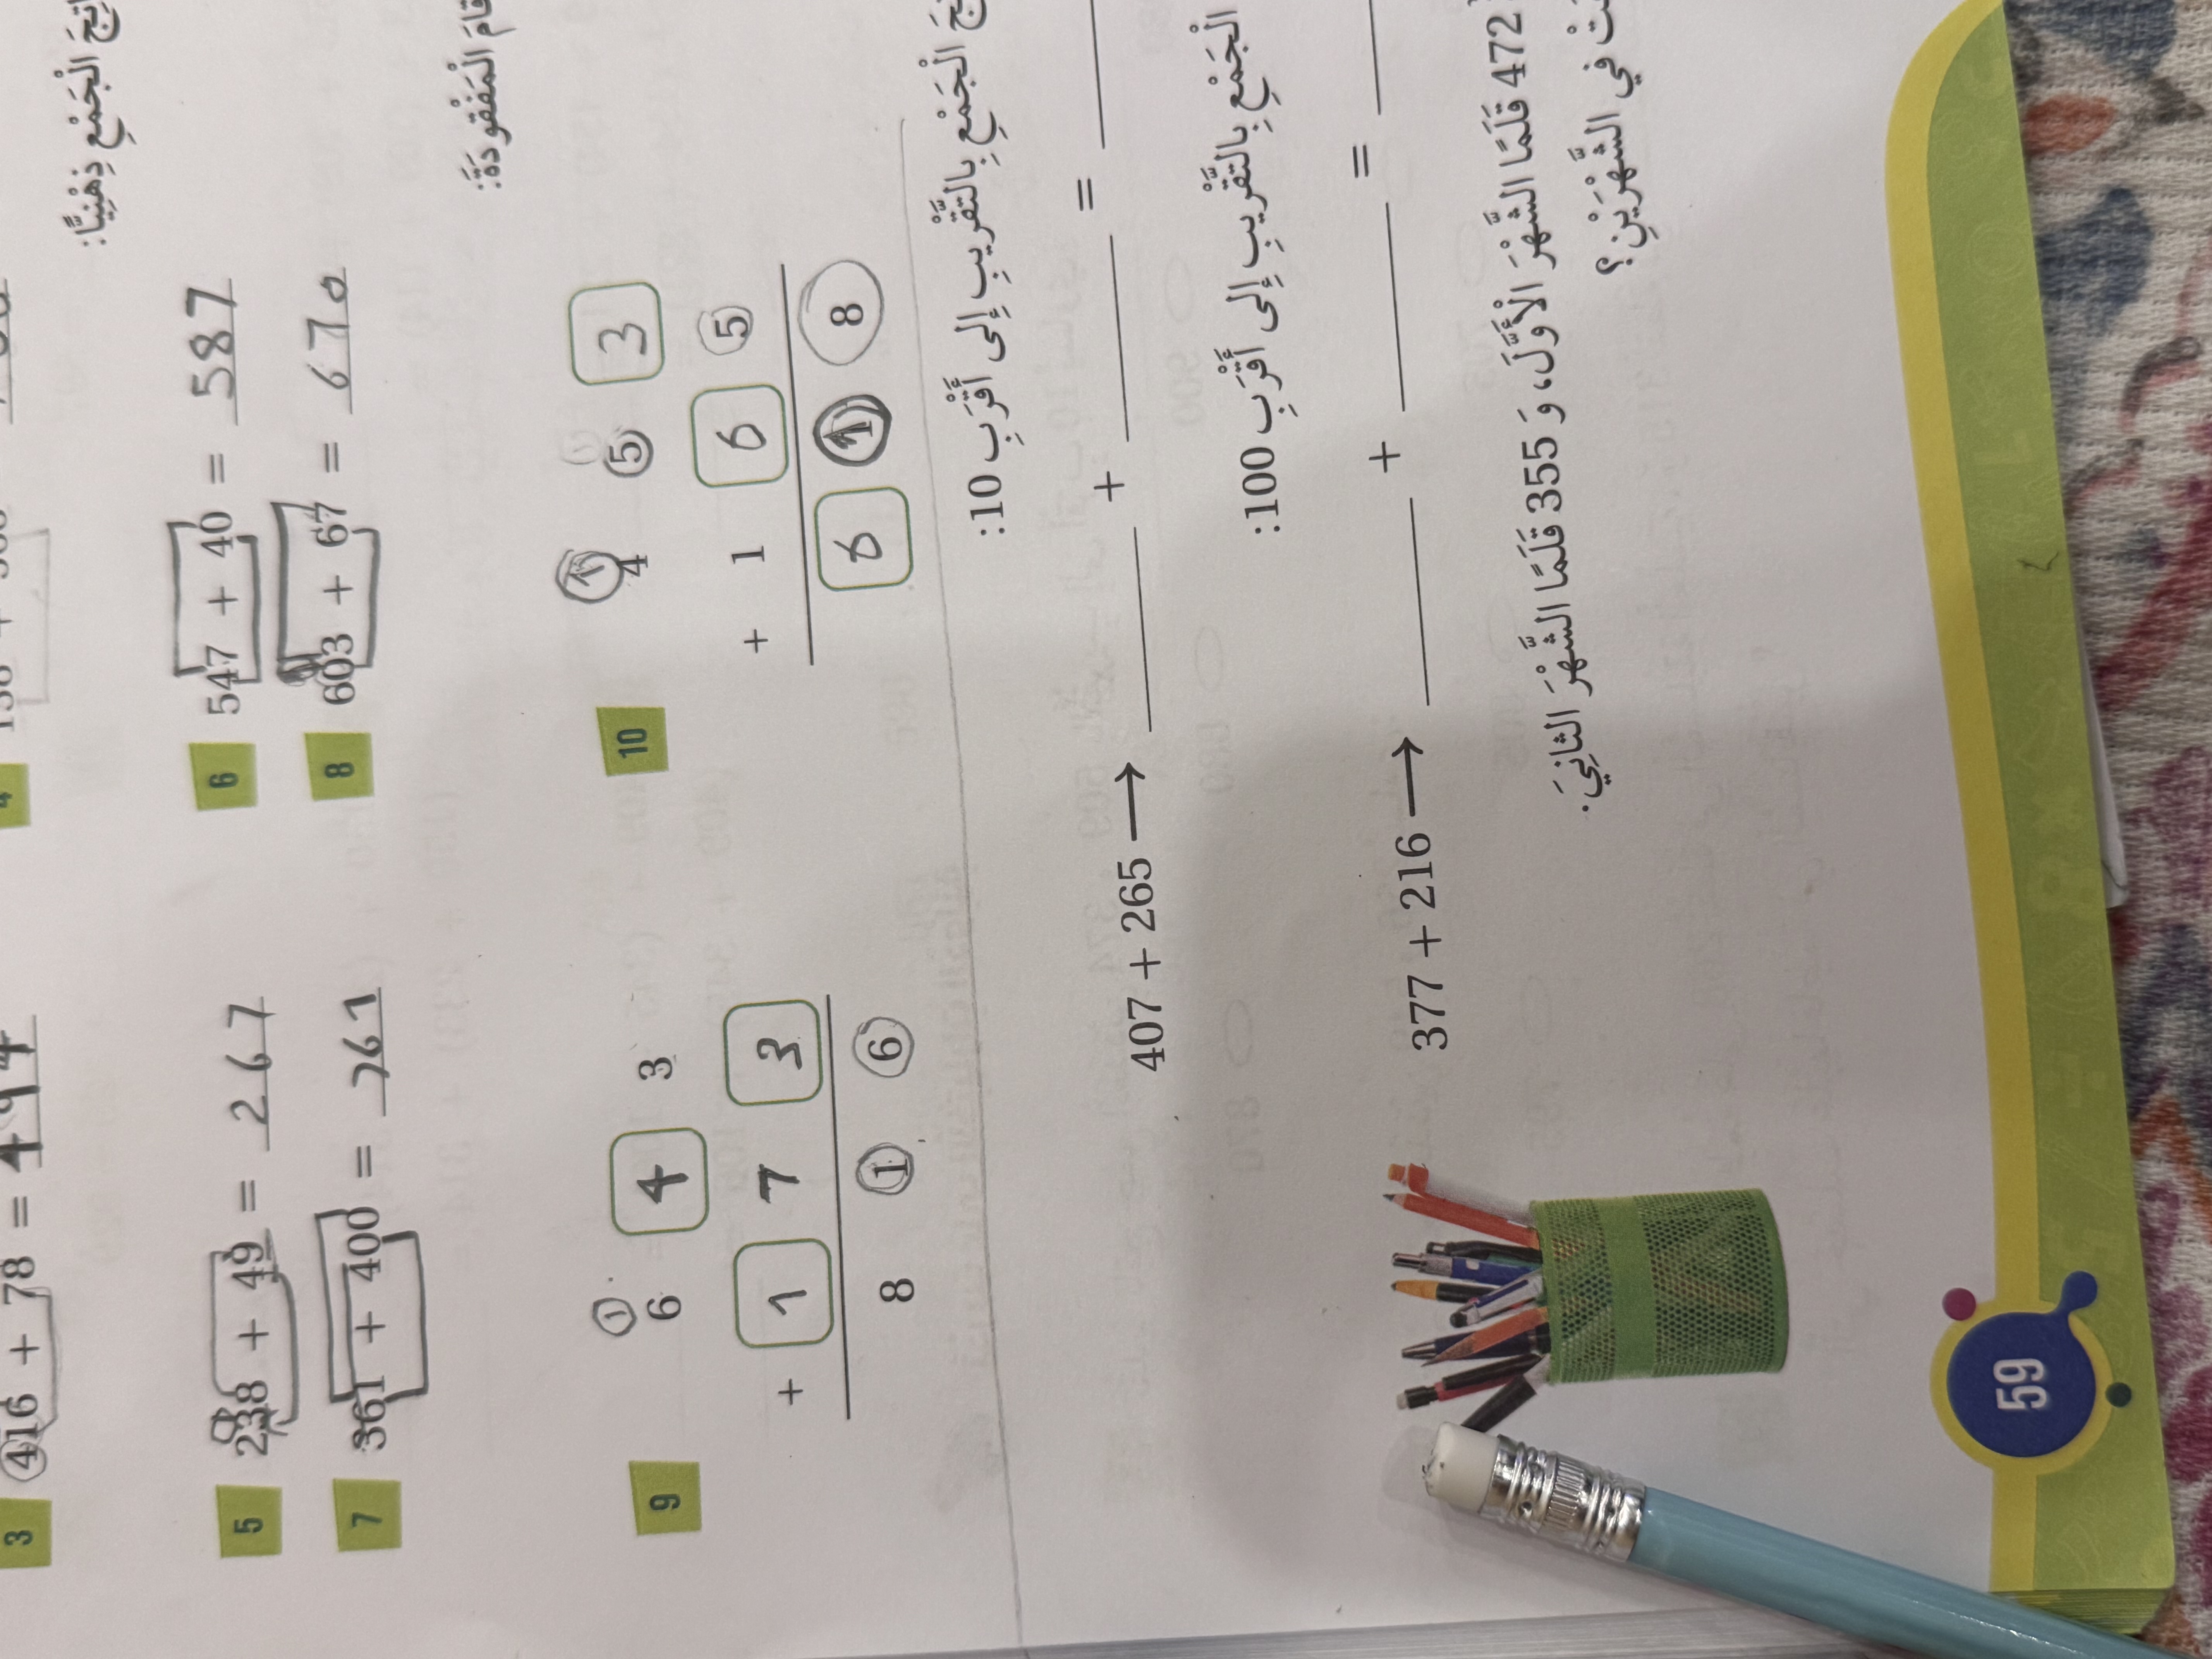 الْجَمْعِ ذِهْنِيًّا:
3 416 + 78 = 494
5 238 + 49 = 267
6 547 + 40 = 587
7 361 + 400 = 761
8 603 + 67 = 670
الْمَفْقُودَةَ:
9
1
6 4 3
+ 1 7 3
8 1 6
10
1
4 5 3
+ 1 6 5
6 1 8
الْجَمْعِ بِالتَّقْرِيبِ إِلى أَقْرَبِ 10:
407 + 265 → ____ + ____ = ____
الْجَمْعِ بِالتَّقْرِيبِ إِلى أَقْرَبِ 100:
377 + 216 → ____ + ____ = ____
472 قَلَمًا الشَّهْرَ الْأَوَّلَ، وَ 355 قَلَمًا الشَّهْرَ الثّانِيَ.
في الشَّهْرَيْنِ؟
59